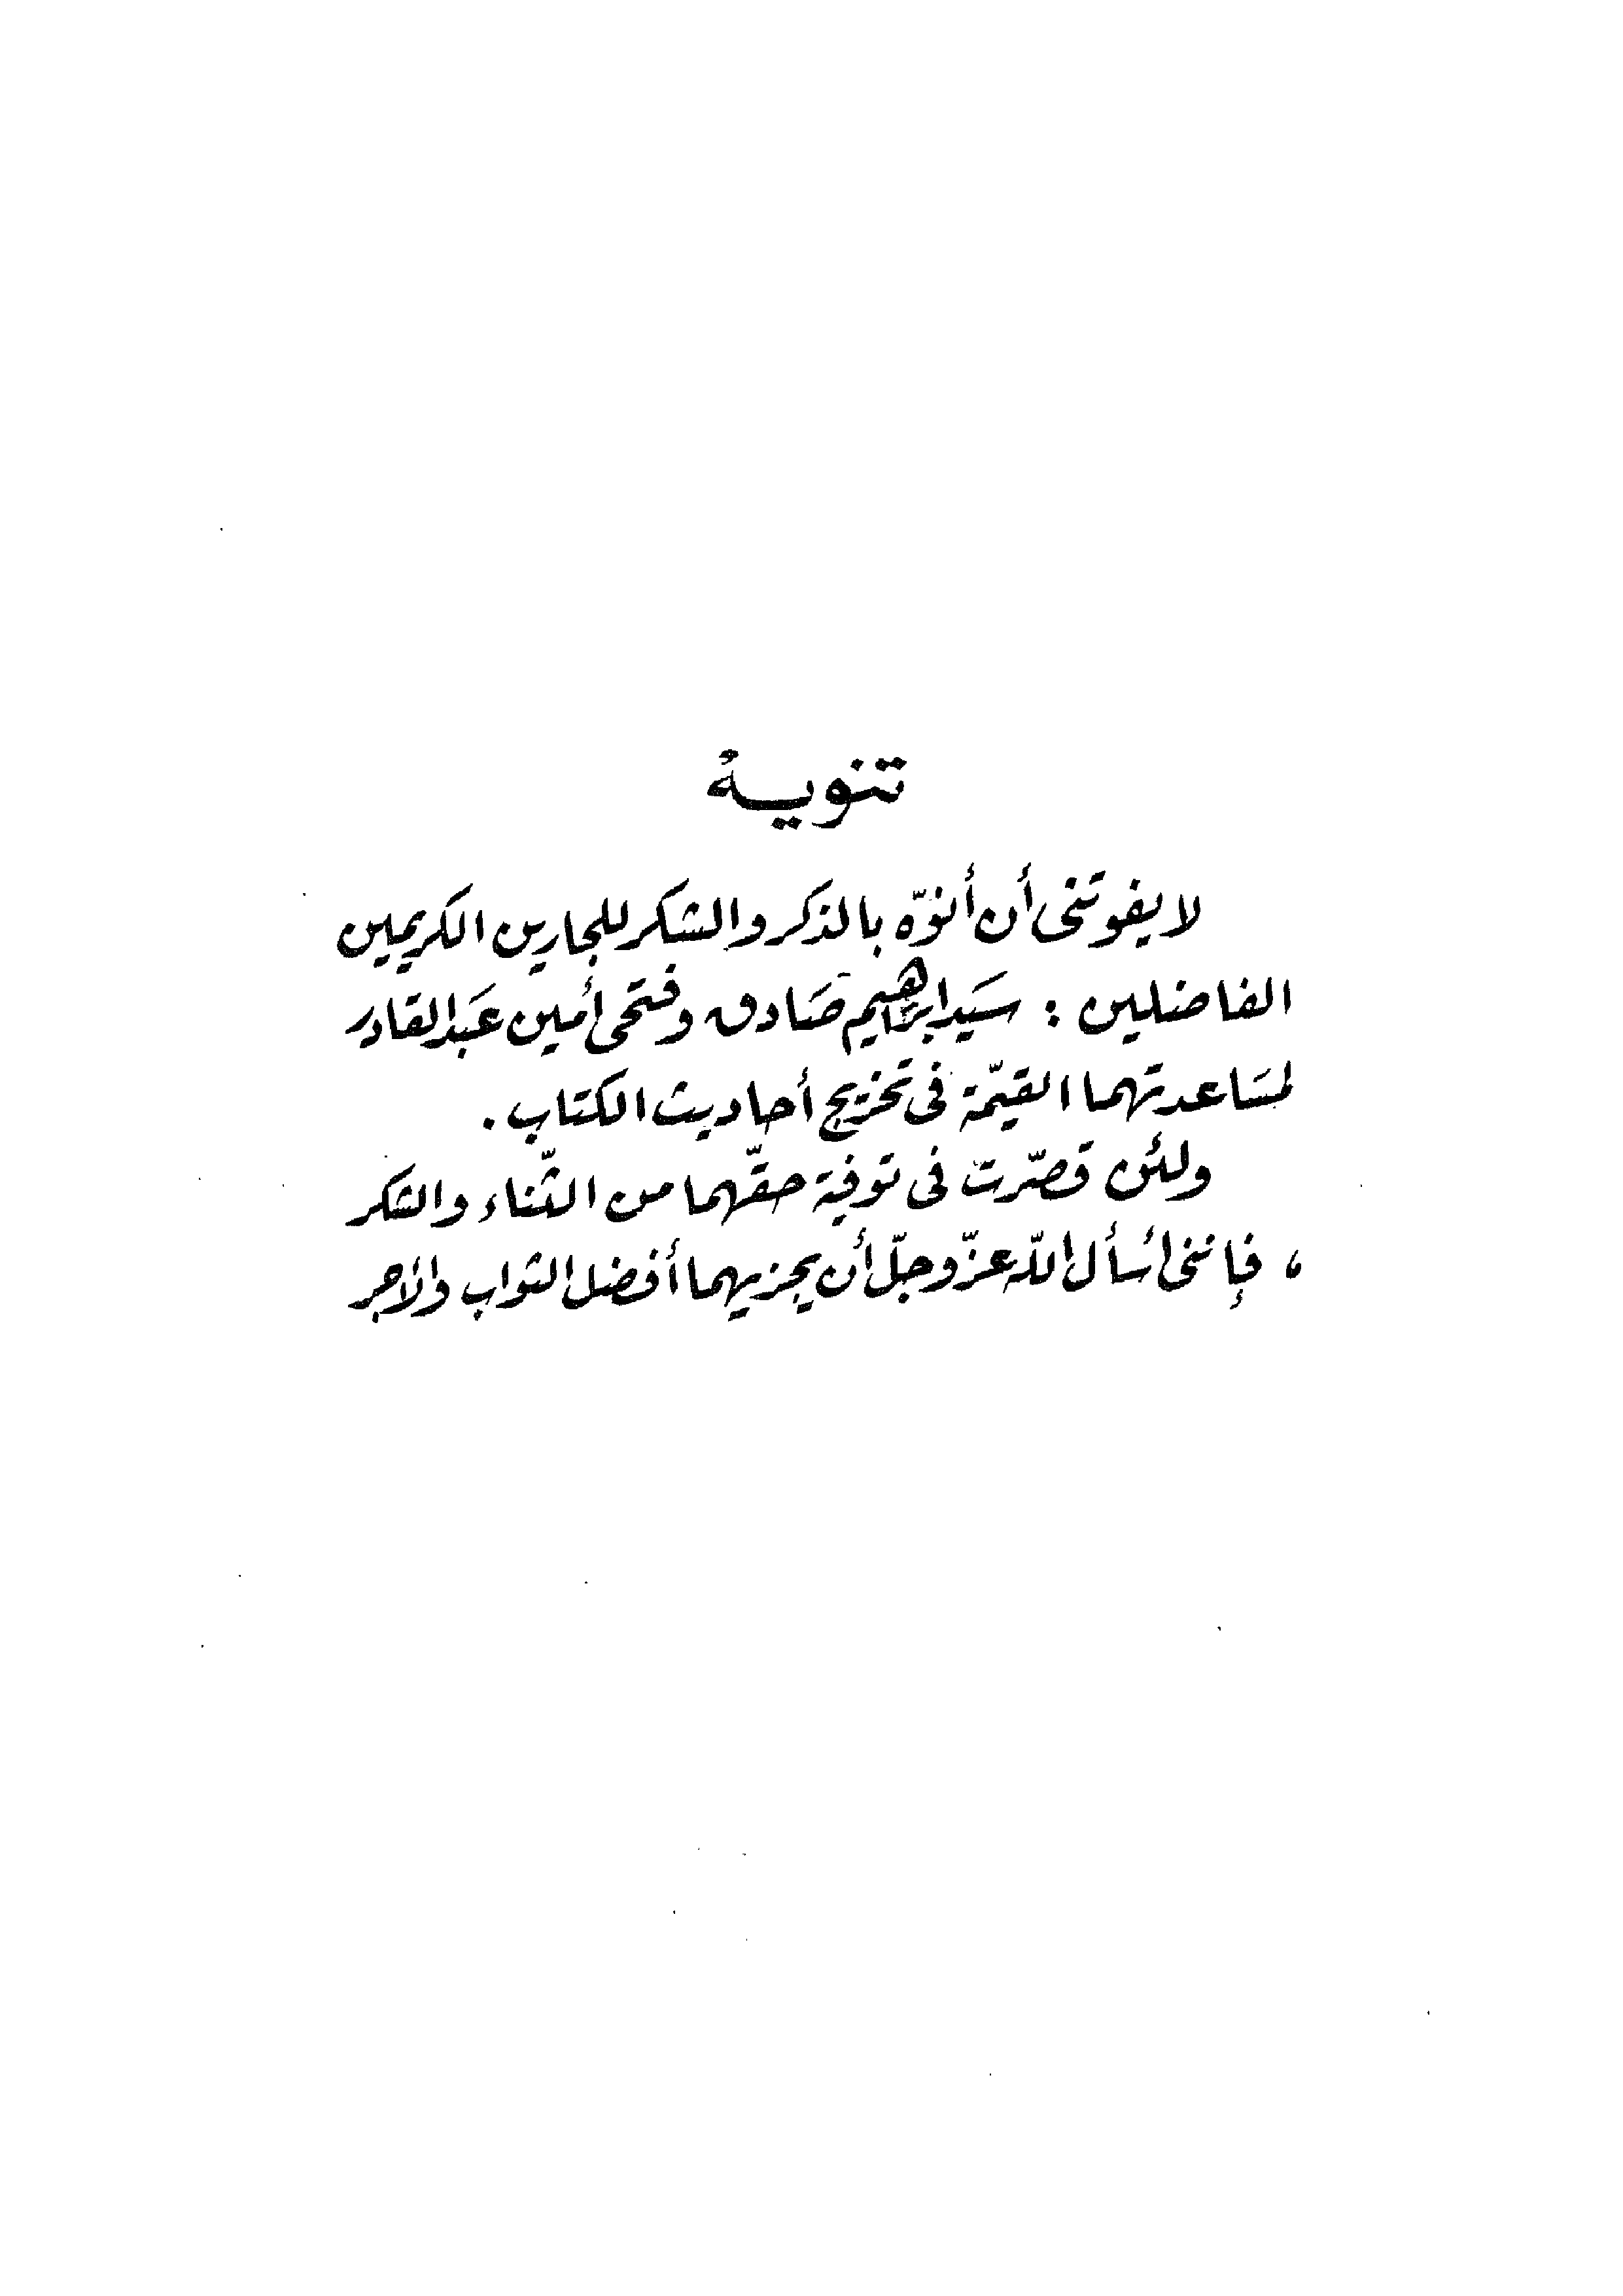 تنويه
لا يفوتنى أن أنوّه بالذكر والشكر للجارين الكريمين
الفاضلين : سَيد ابراهيم صَادق وفتحى أمين عَبد القادر
لمسَاعدتهما القيّمة فى تخريج أحاديث الكتاب .
ولئن قصّرت فى توفية حقّهما من الثّناء والشكر
، فإننى أسأل اللّه عزّ وجلّ أن يجزيهما أفضل الثواب والأجر